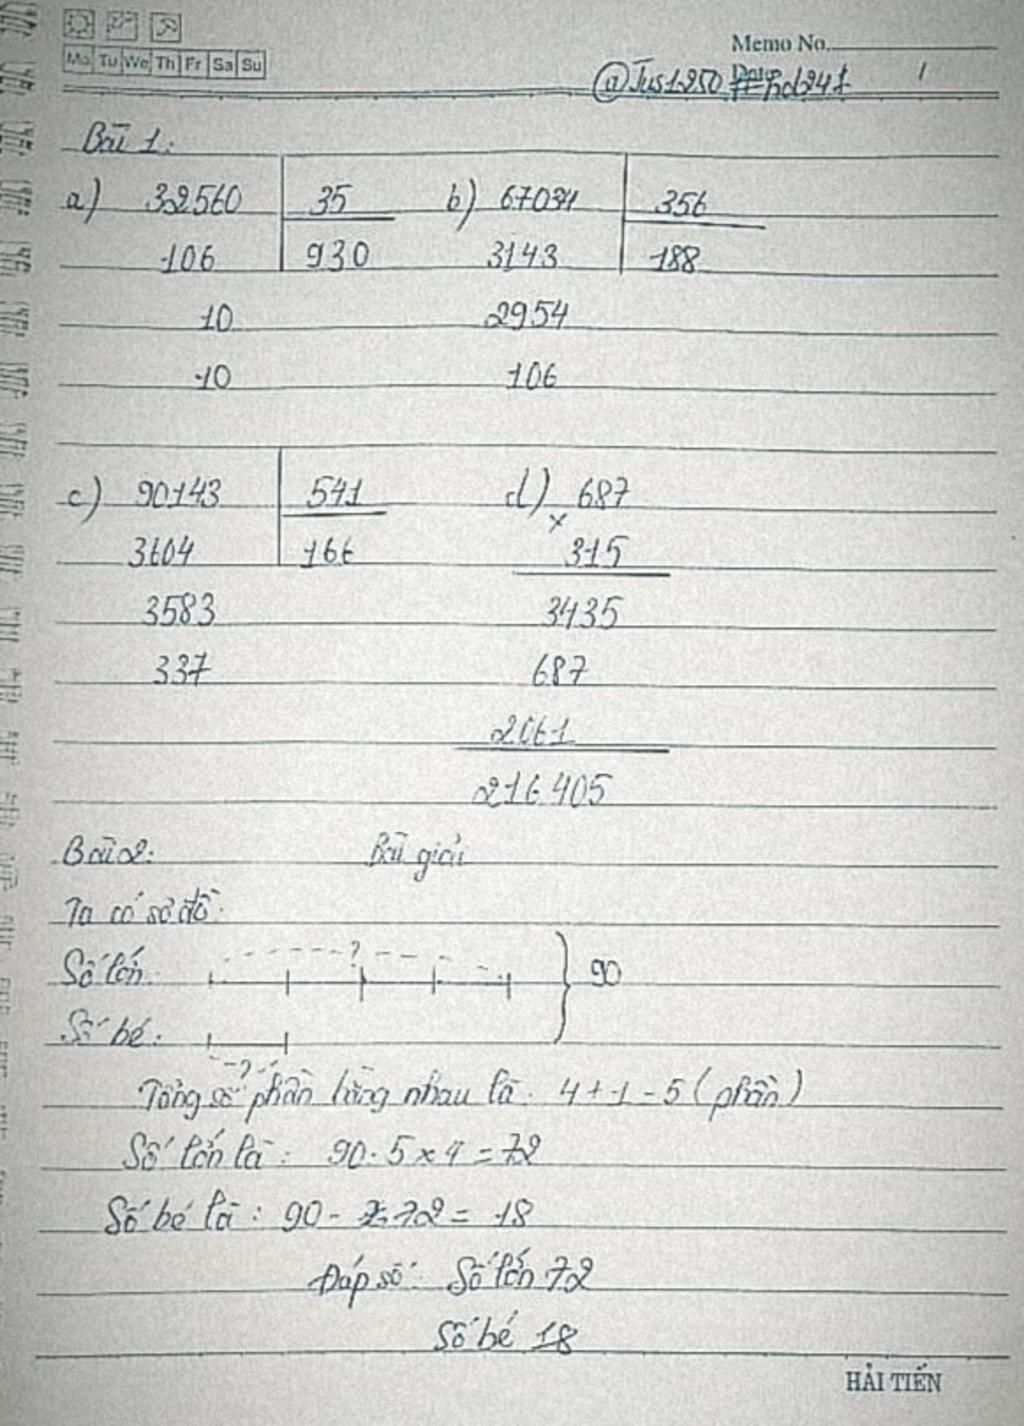 Mo Tu We Th Fr Sa Su
Memo No.
Bài 1:
a) 32560 35 b) 67034 356
106 930 3143 188
10 2954
10 106
c) 90143 541 d) 687
3604 166 × 315
3583 3435
337 687
2061
216405
Bài 2: Bài giải
Ta có sơ đồ:
Số lớn: ? 90
Số bé:
?
Tổng số phần bằng nhau là: 4 + 1 = 5 (phần)
Số lớn là: 90 : 5 x 4 = 72
Số bé là: 90 - 72 = 18
Đáp số: Số lớn 72
Số bé 18
HẢI TIẾN